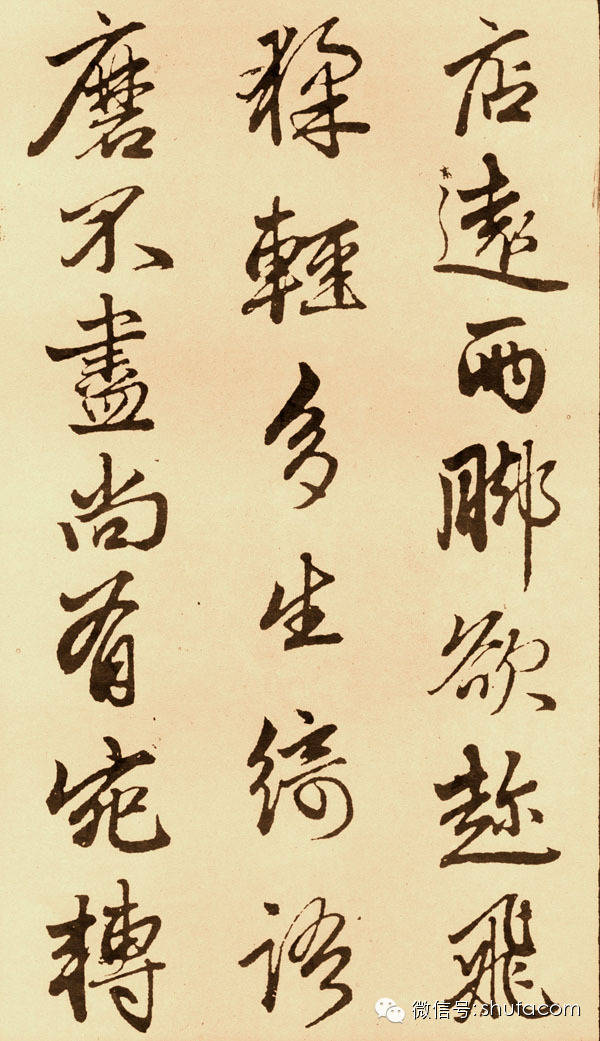 店遠兩脚欲趂飛
猱輕多生綺語
磨不盡尚有宛轉
微信号: shufacom